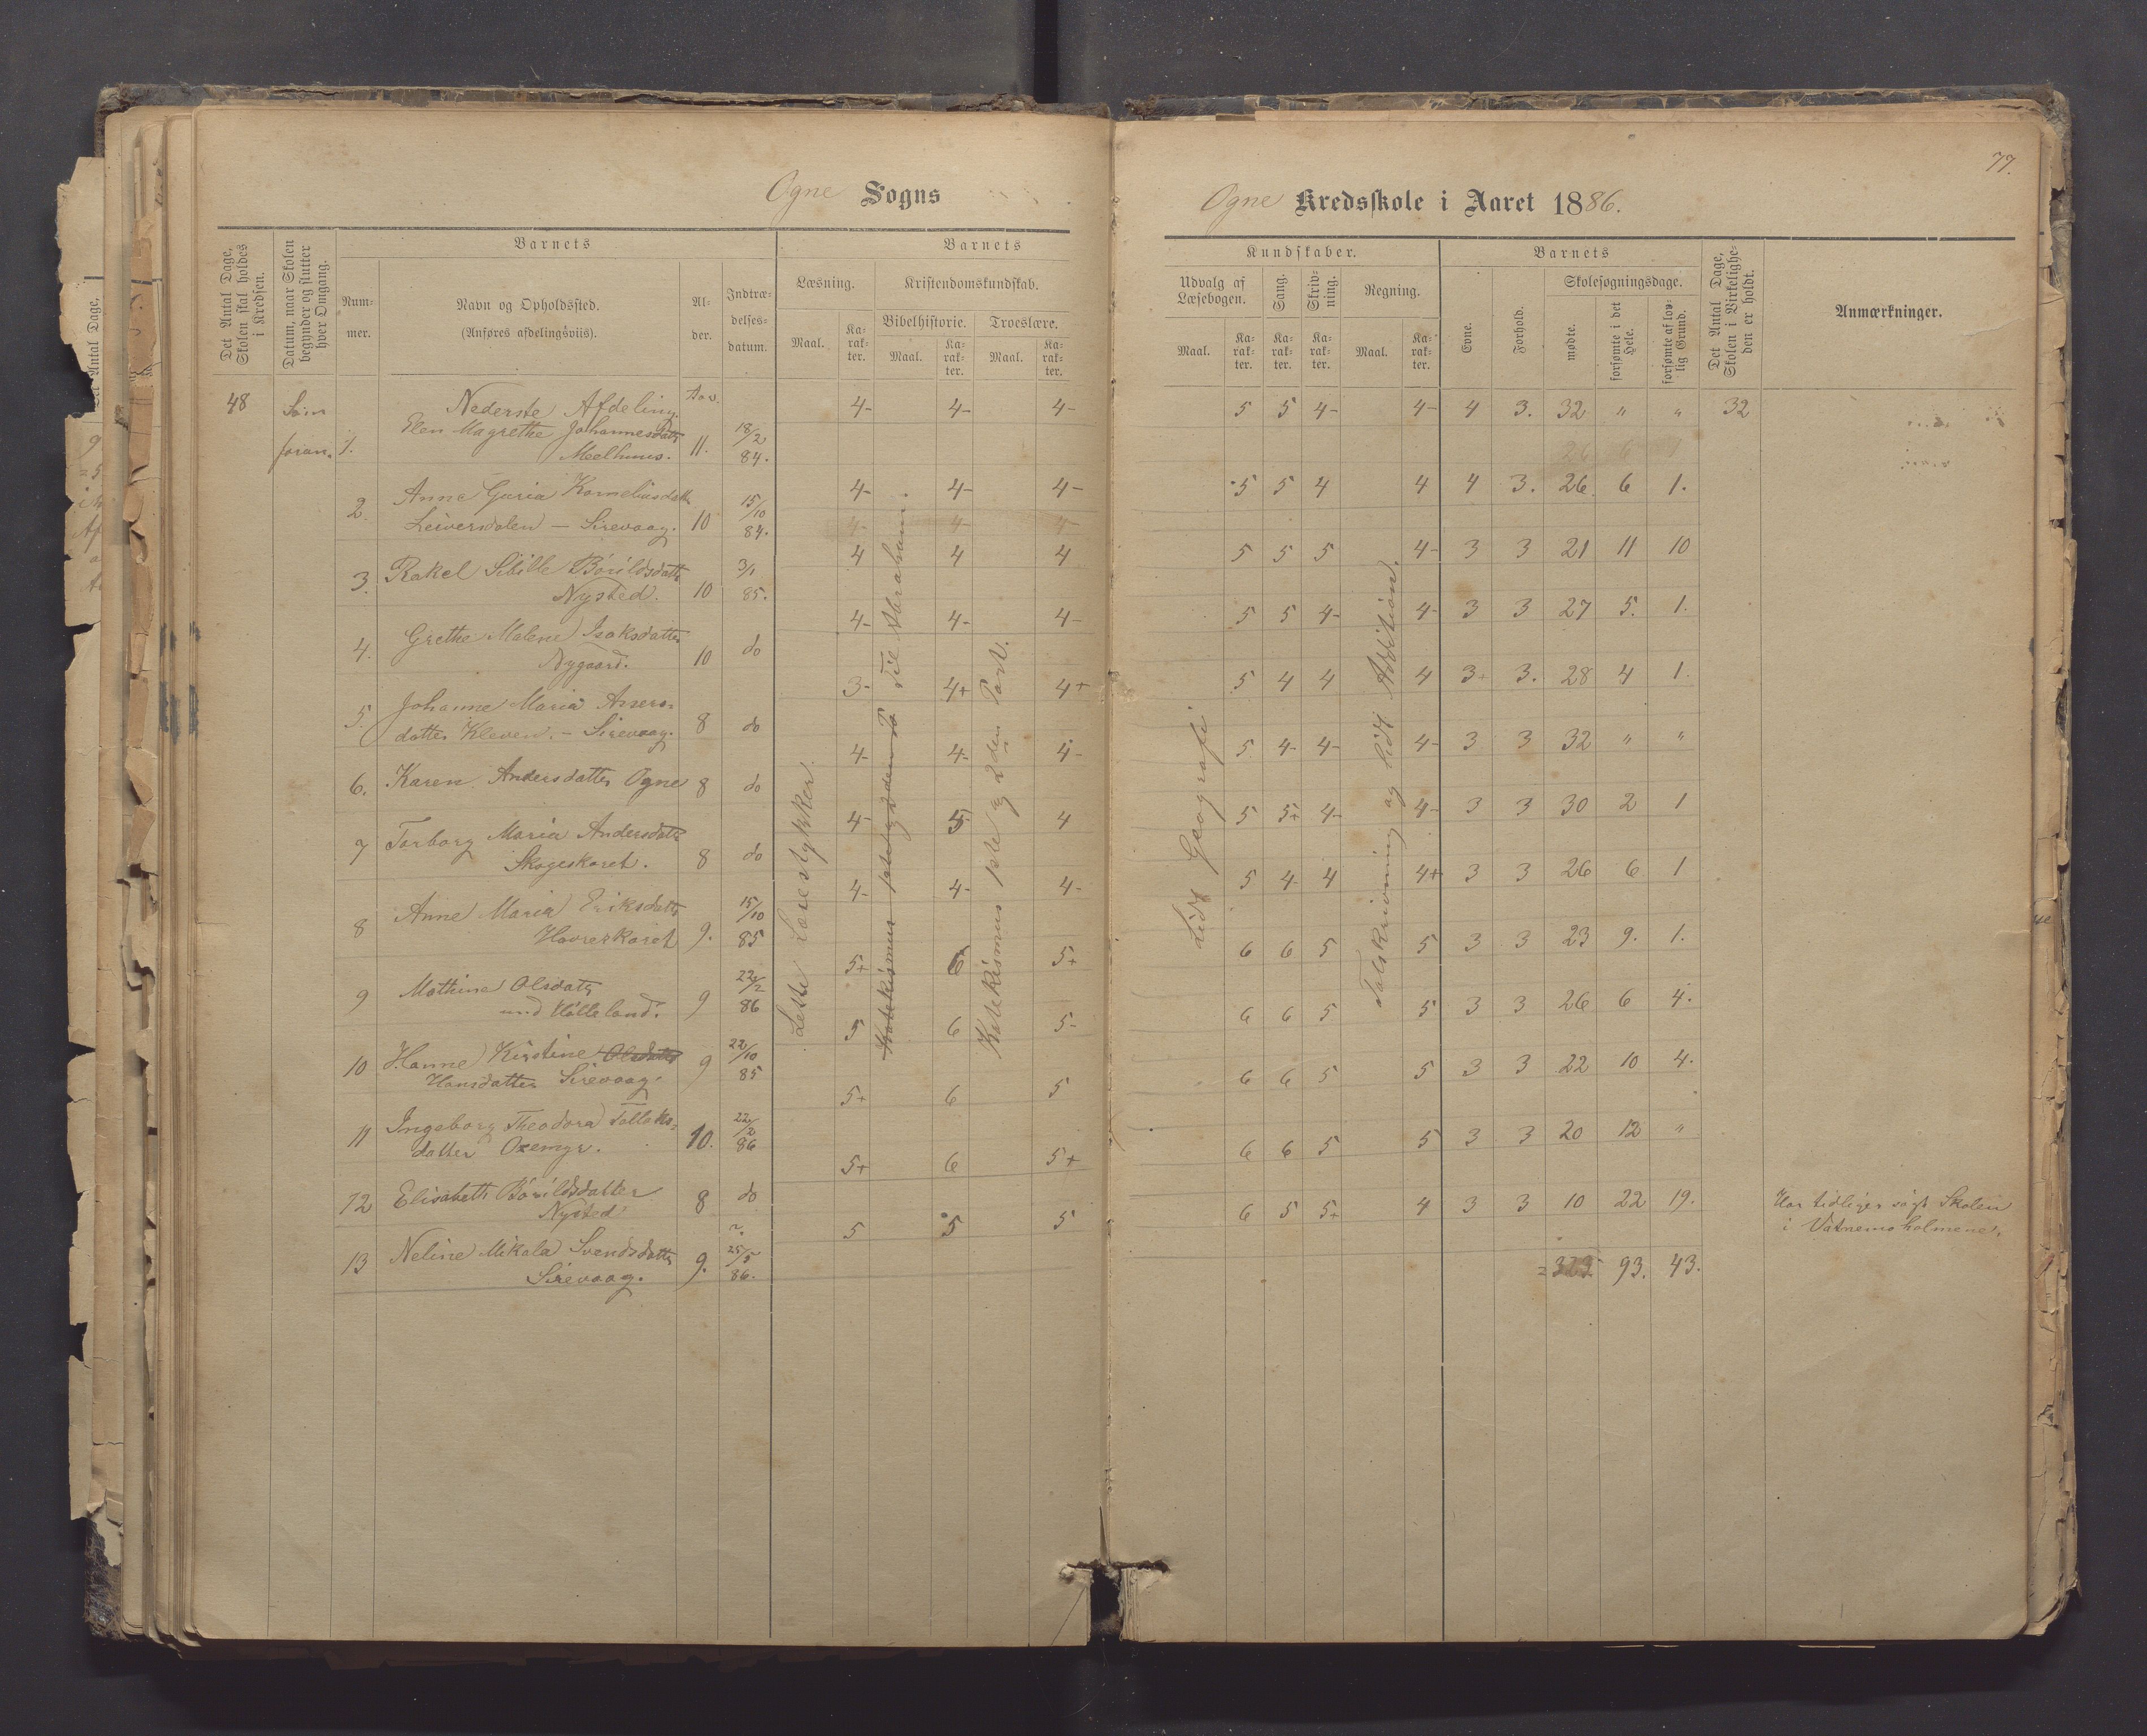 77.
Ogne Sogns
Ogne Kredsskole i Aaret 1886.
Det Antal Dage, Skolen skal holdes i Kredsen.
Datum, naar Skolen begynder og slutter hver Omgang.
Barnets
Num-mer.
Navn og Opholdssted.
(Anføres afdelingsviis).
Al-der.
Indtræ-delses-datum.
Barnets
Læsning.
Maal.
Ka-rak-ter.
Kristendomskundskab.
Bibelhistorie.
Maal.
Ka-rak-ter.
Troeslære.
Maal.
Ka-rak-ter.
Kundskaber.
Udvalg af Læsebogen.
Maal.
Ka-rak-ter.
Sang.
Ka-rak-ter.
Skriv-ning.
Ka-rak-ter.
Regning.
Maal.
Ka-rak-ter.
Barnets
Evne.
Forhold.
Skolesøgningsdage.
mødte.
forsømte i det Hele.
forsømte af lov-lig Grund.
Det Antal Dage, Skolen i Virkelighe-den er holdt.
Anmærkninger.
48 Som foran.
Nederste Afdeling.
1. Elen Magrethe Johannesdatter
Meelhuus. 11. 18/2 84. 4- 4- 4- 5 5 4- 4- 4 3. 32 " " 32
2. Anne Guria Korneliusdatter
Leiversdalen — Sirevaag. 10 15/10 84. 4- 4- 4- 5 5 4 4 4 3. 26 6 1.
3. Rakel Sibille Bórildsdatter
Nysted. 10 3/1 85. 4 4 4 5 5 5 4- 3 3 21 11 10
4. Grethe Malene Isaksdatter
Nygaard. 10 do 4- 4- 4- 5 5 4- 4- 3 3 27 5. 1.
5. Johanne Maria Assers-
datter Kleven. – Sirevaag. 8 do 3- 4+ 4+ 5 4 4 4 3+ 3. 28 4 1.
6. Karen Andersdatter Ogne 8 do 4- 4- 4- 5 4- 4- 4- 3 3 32 " "
7 Torborg Maria Andersdatter
Skogeskaret. 8 do 4- 5 4 5 5+ 4- 4- 3 3 30 2 1
8 Anne Maria Eriksdatter
Havreskaret 9. 15/10 85 4- 4- 4- 5 4- 4 4+ 3 3 26 6 1
9 Mathine Olsdatter
und Hölleland. 9 22/2 86 5+ 6 5+ 6 6 5 5 3 3 23 9. 1.
10 Hanne Kirstine Olsdatter
Hansdatter Sirevaag. 9 22/10 85 5 6 5- 6 6 5 5 3 3 26 6 4.
11 Ingeborg Theodora Tollaks-
datter Oxemyr. 10. 22/2 86 5+ 6 5 6 6 5 5 3 3 22 10 4.
12 Elisabeth Bórildsdatter
Nysted 8 do 5+ 6 5+ 6 6 5 5 3 3 20 12 "
13 Neline Mikala Svendsdatter
Sirevaag. 9. 25/5 86. 5 5 5 6 5 5+ 4 3 3 10 22 19. Har tidliger søgt Skolen
i Vatnemoholmene.
= 323 93. 43.
Lette Læsestykker.
til Abraham.
Katekismus 1ste og 2den Part.
Lidt Geografi
Talskrivning og lidt Addition.